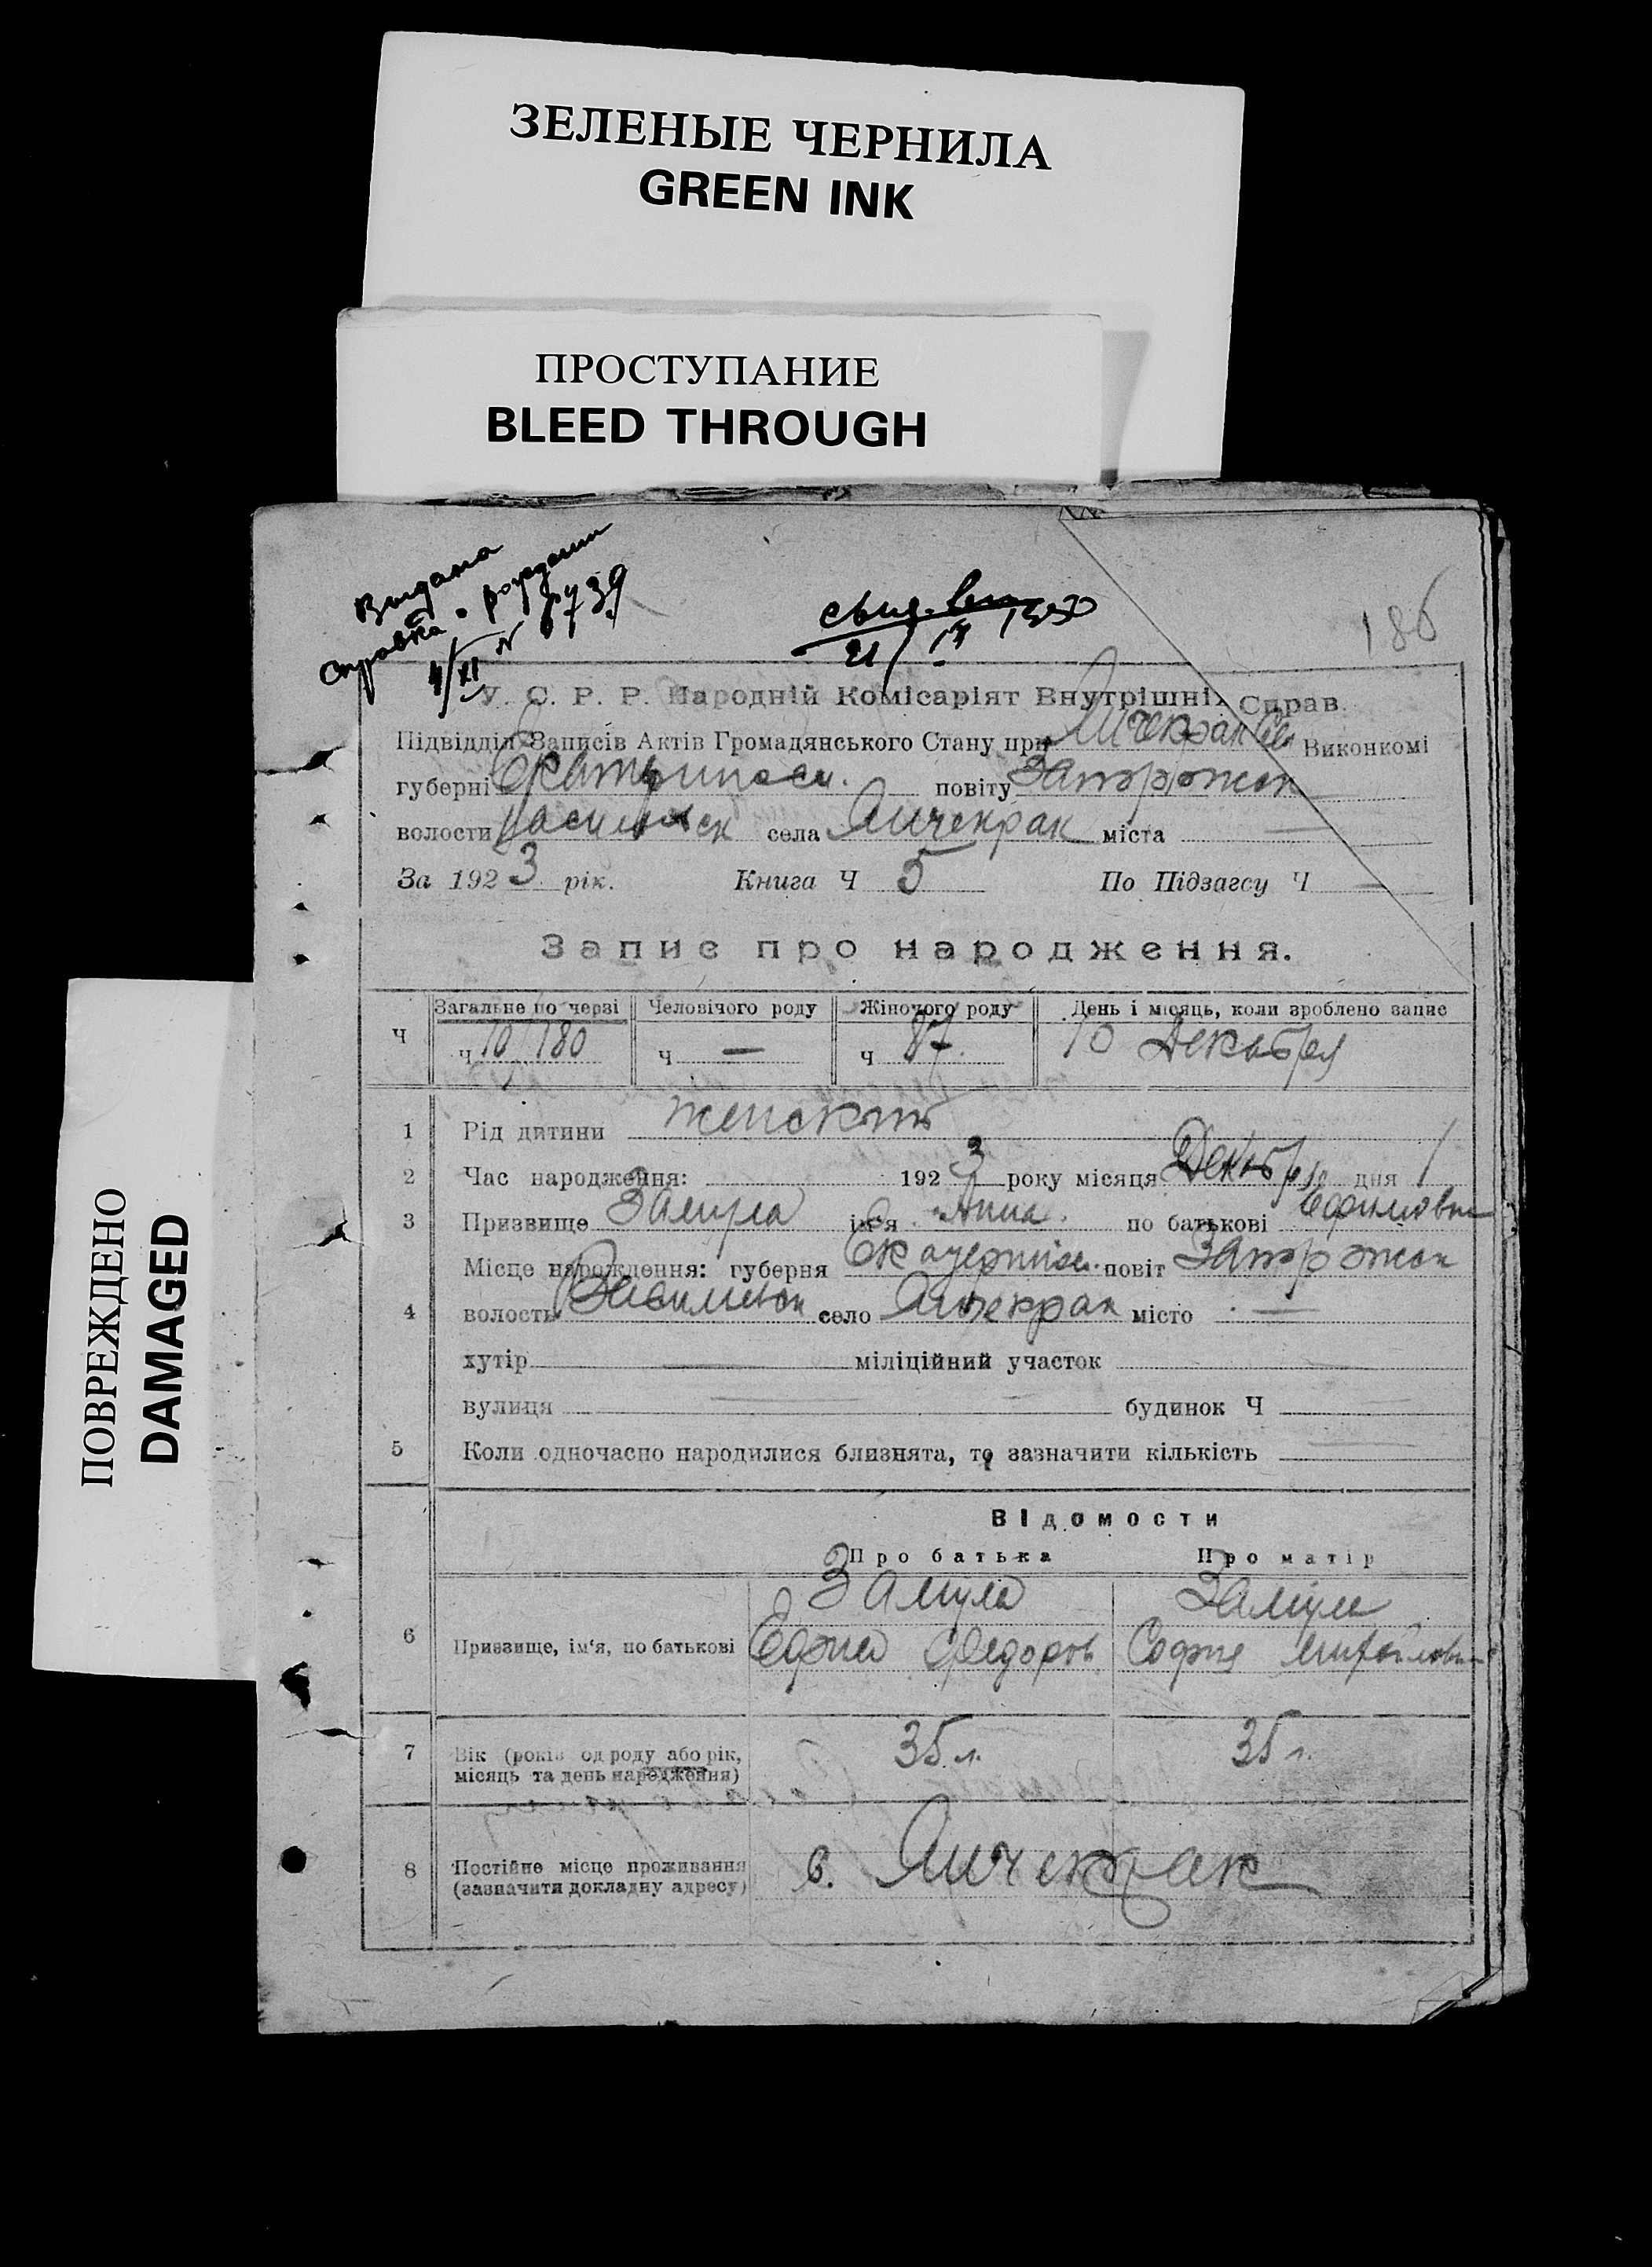 ЗЕЛЕНЫЕ ЧЕРНИЛА
GREEN INK
ПРОСТУПАНИЕ
BLEED THROUGH
ПОВРЕЖДЕНО
DAMAGED
Выдана
справка о рождении
4/XI № 6739
186
21/IV
У. С. Р. Р. Народній Комісаріят Внутрішніх Справ.
Підвідділ Записів Актів Громадянського Стану при Янчекрак Сел Виконкомі
губерні Екатериносл. повіту Запорожск
волости Василевск села Янчекрак міста —
За 1923 рік. Книга Ч 5 По Підзагсу Ч —
Запис про народження.
Загальне по черзі Человічого роду Жіночого роду День і місяць, коли зроблено запис
Ч ч 180 ч — ч 87. 10 Декабря
1 Рід дитини женский
2 Час народження: 1923 року місяця Декабря дня 1
3 Призвище Замула ім'я Анна по батькові Ефимовн
Місце народження: губерня Екатеринос. повіт Запорожск
4 волость Василевск село Янчекрак місто —
хутір — міліційний участок
вулиця — будинок Ч
5 Коли одночасно народилися близнята, то зазначити кількість
Відомости
Про батька Про матір
Замула Замула
6 Призвище, ім'я, по батькові Ефим Федоров София Михайловн
7 Вік (років од роду або рік, 35 л. 35 л.
місяць та день народження)
8 Постійне місце проживання с. Янчекрак
(зазначити докладну адресу)